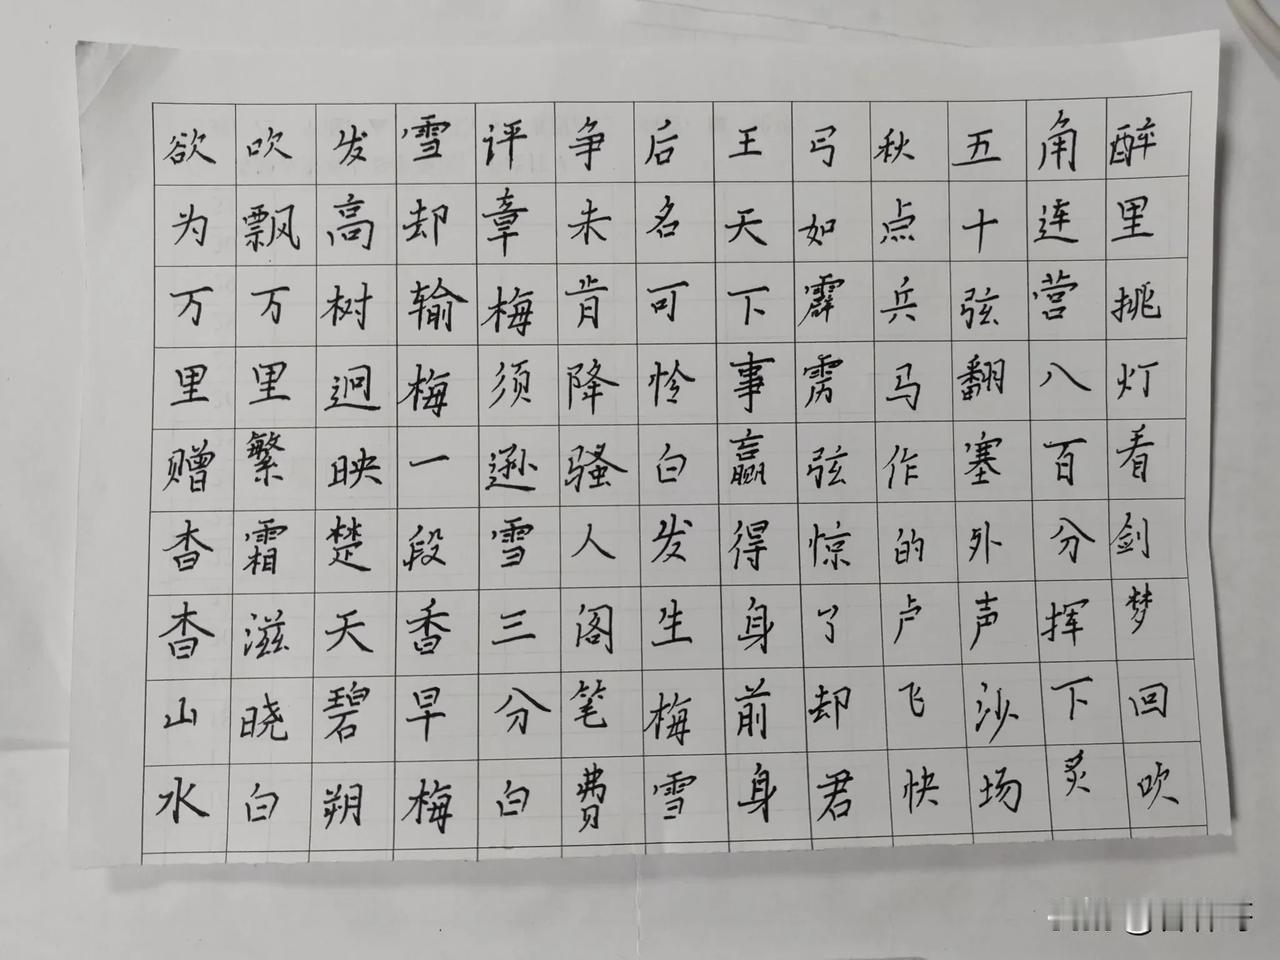 醉里挑灯看剑梦回吹
角连营八百分挥下炙
五十弦翻塞外声沙场
秋点兵马作的卢飞快
弓如霹雳弦惊了却君
王天下事赢得身前身
后名可怜白发生梅雪
争未肯降骚人阁笔费
评章梅须逊雪三分白
雪却输梅一段香早梅
发高树迥映楚天碧朔
吹飘万里繁霜滋晓白
欲为万里赠杳杳山水